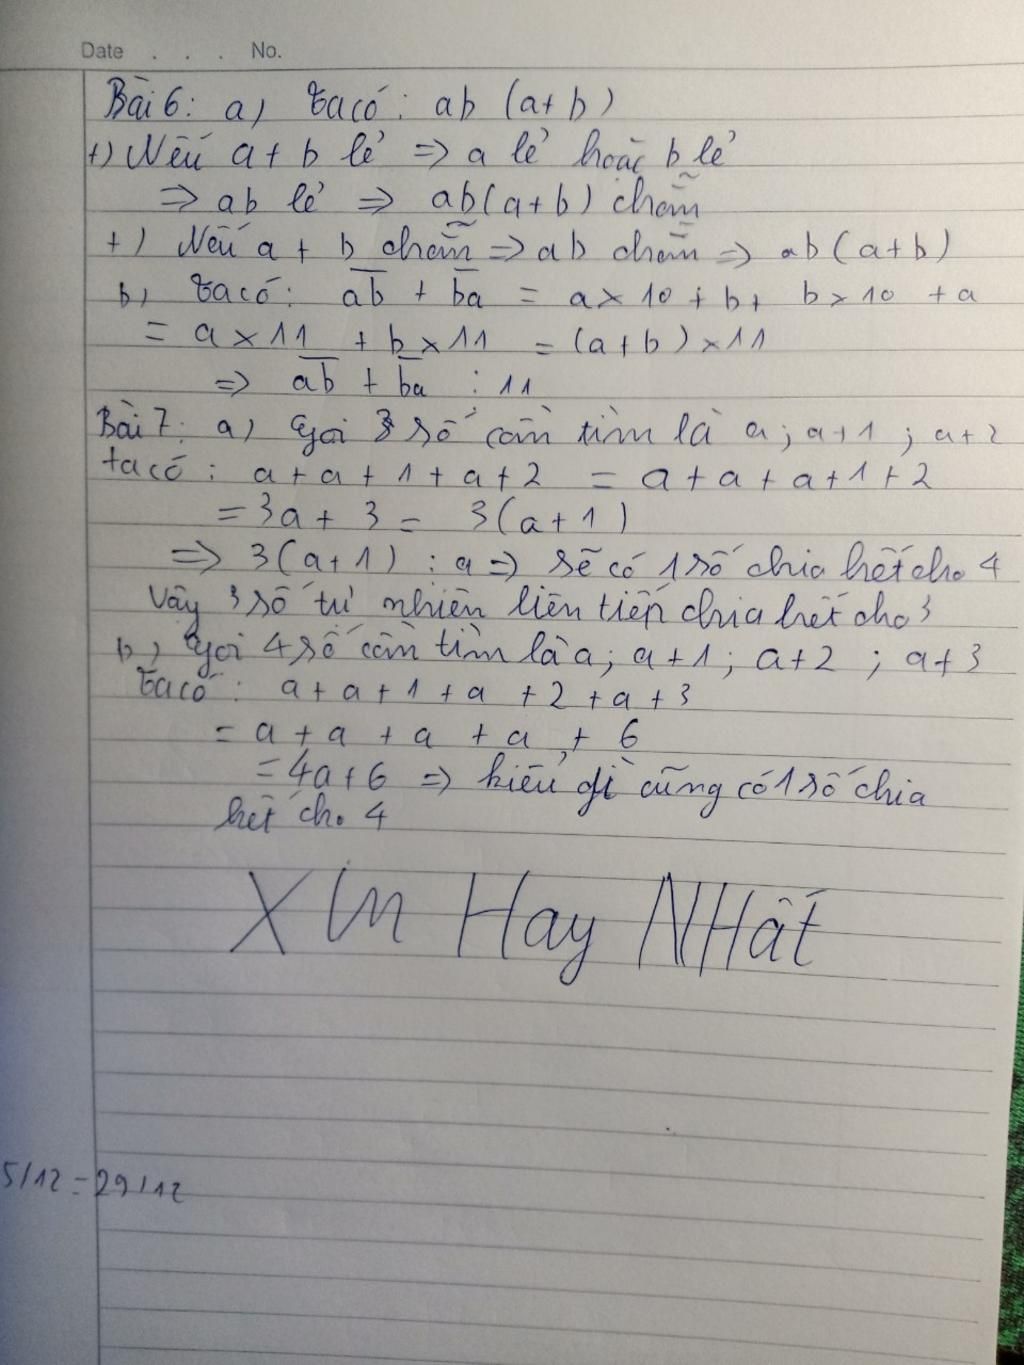 Date . . . No.
Bài 6: a) Ta có: ab (a+b)
+) Nếu a + b lẻ => a lẻ hoặc b lẻ
=> ab lẻ => ab(a+b) chẵn
+) Nếu a + b chẵn => ab chẵn => ab(a+b)
b) Ta có: a̅b̅ + b̅a̅ = a × 10 + b + b × 10 + a
= a × 11 + b × 11 = (a+b) × 11
=> a̅b̅ + b̅a̅ : 11
Bài 7: a) Gọi 3 số cần tìm là a; a+1; a+2
ta có: a + a + 1 + a + 2 = a + a + a + 1 + 2
= 3a + 3 = 3(a+1)
=> 3(a+1) : a => sẽ có 1 số chia hết cho 4
Vậy 3 số tự nhiên liên tiếp chia hết cho 3
b) Gọi 4 số cần tìm là a; a+1; a+2; a+3
Ta có: a + a + 1 + a + 2 + a + 3
= a + a + a + a + 6
= 4a + 6 => kiểu gì cũng có 1 số chia
hết cho 4
Xin Hay NHất
5/12 = 29/12